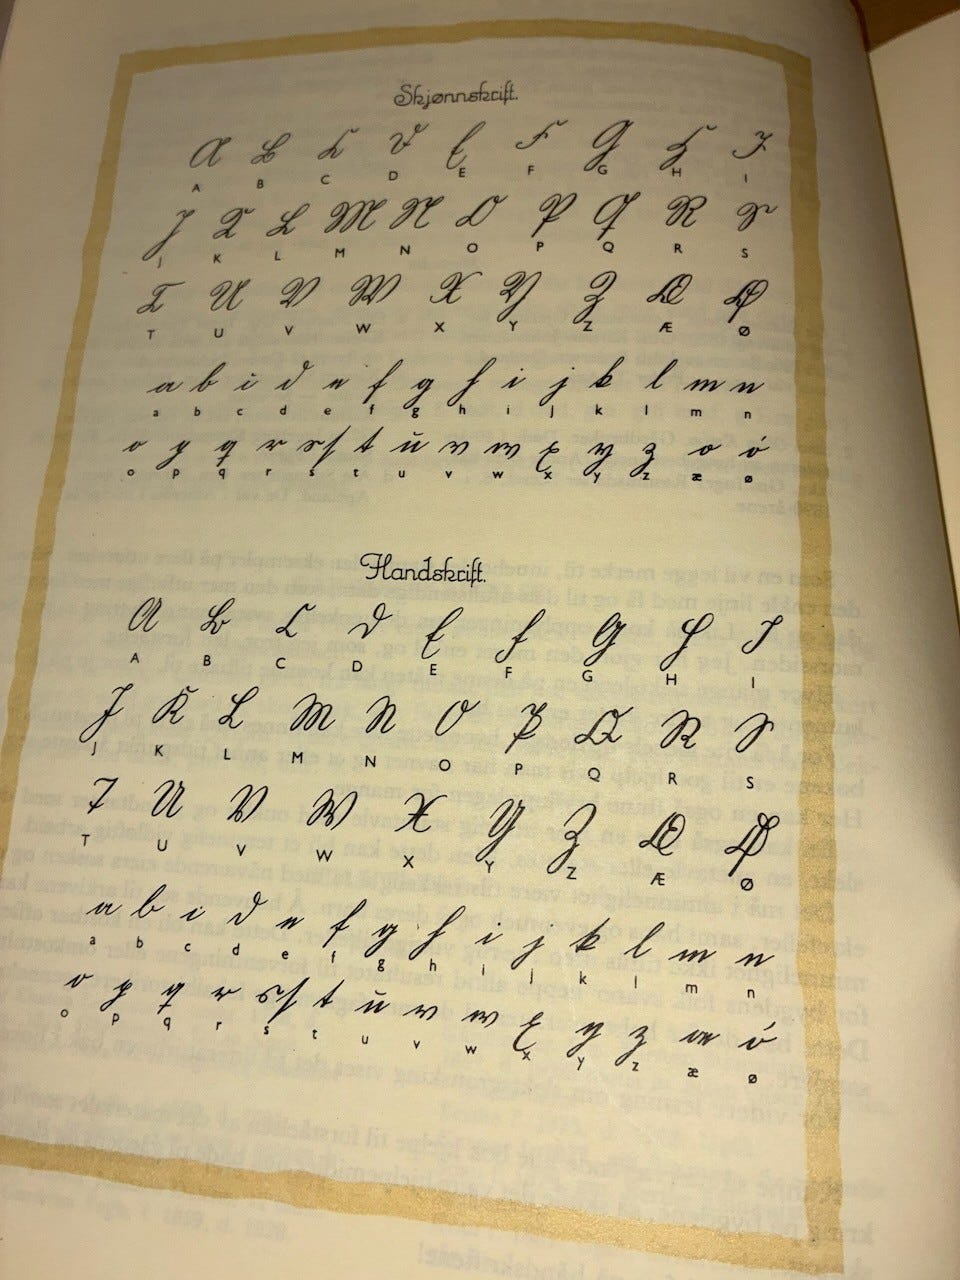 Skjønnskrift.
A B C D E F G H I
A B C D E F G H I
J K L M N O P Q R S
J K L M N O P Q R S
T U V W X Y Z Æ Ø
T U V W X Y Z Æ Ø
a b c d e f g h i j k l m n
a b c d e f g h i j k l m n
o p q r s s t u v w x y z æ ø
o p q r s t u v w x y z æ ø
Handskrift.
A B C D E F G H I
A B C D E F G H I
J K L M N O P Q R S
J K L M N O P Q R S
T U V W X Y Z Æ Ø
T U V W X Y Z Æ Ø
a b c d e f g h i j k l m n
a b c d e f g h i j k l m n
o p q r s s t u v w x y z æ ø
o p q r s t u v w x y z æ ø